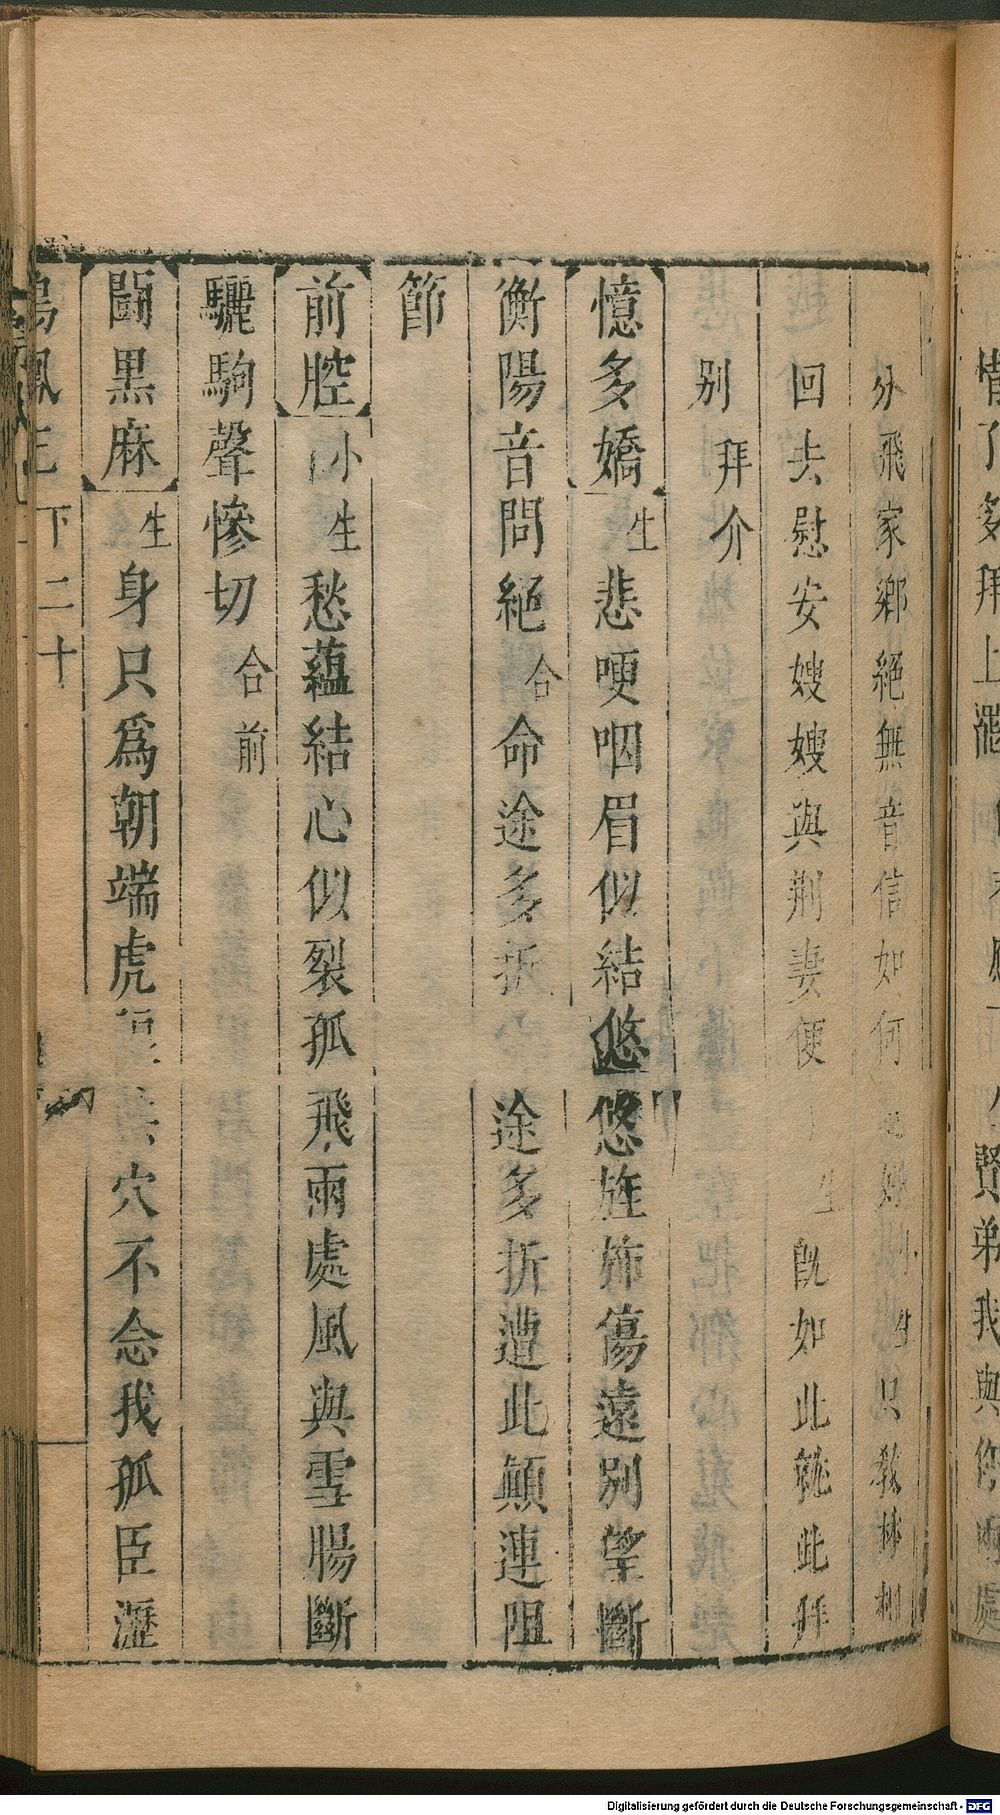 情了多拜上
賢弟我與你
處
分飛家鄉絕無音信如何 生只教林
回去慰安嫂嫂與荆妻便 生既如此就此拜
別 拜介
憶多嬌 生悲哽咽眉似結悠悠旌斾傷遠別望斷
衡陽音問絕 合命途多折 途多折遭此顛連阻
節
前腔 小生愁蘊結心似裂孤飛兩處風與雪腸斷
驪駒聲慘切 合前
鬪黑麻 生身只爲朝端虎 穴不念我孤臣瀝
下二十
Digitalisierung gefördert durch die Deutsche Forschungsgemeinschaft - DFG